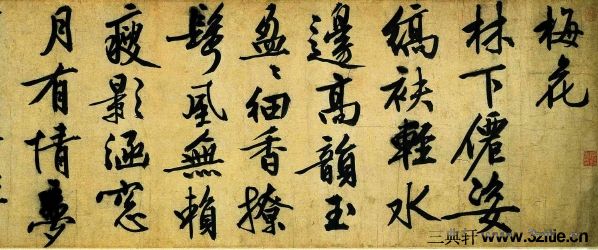 梅花
林下僊姿
縞袂輕水
邊高韻玉
盈〻細香撩
鬢風無賴
瘦影涵窓
月有情夢
三典轩 www.3zitie.cn